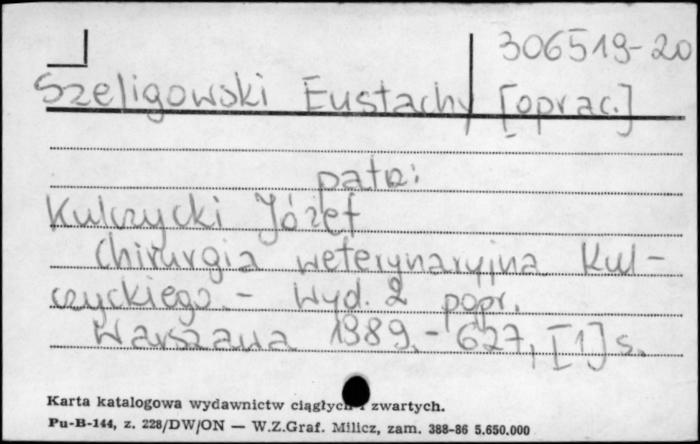 306519-20
Szeligowski Eustachy [oprac.]
patrz:
Kulczycki Józef
Chirurgia weterynaryjna Kul-
czyckiego. - Wyd. 2 popr.
Warszawa 1989. - 627, [1] s.
Karta katalogowa wydawnictw ciągłych i zwartych.
Pu-B-144, z. 228/DW/ON — W.Z.Graf. Milicz, zam. 388-86 5.650.000